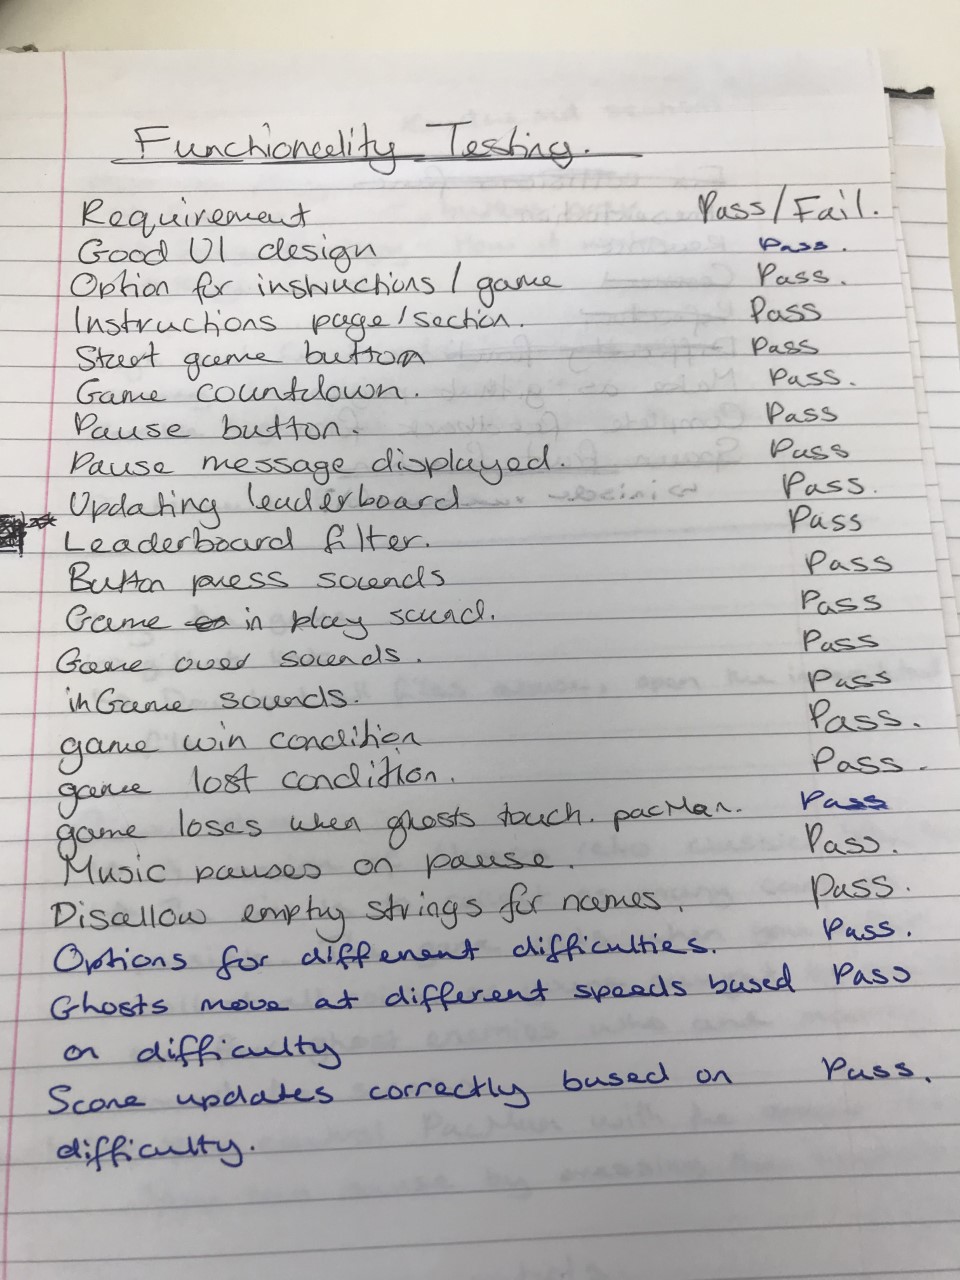 Functionality Testing.
Requirement Pass/Fail.
Good UI design Pass.
Option for instructions / game Pass.
Instructions page/section. Pass
Start game button Pass
Game countdown. Pass.
Pause button. Pass
Pause message displayed. Pass
Updating leaderboard Pass.
Leaderboard filter. Pass
Button press sounds Pass
Game in play sound. Pass
Game over sounds. Pass
inGame sounds. Pass
game win condition Pass.
game lost condition. Pass.
game loses when ghosts touch. pacMan. Pass
Music pauses on pause. Pass.
Disallow empty strings for names. Pass.
Options for different difficulties. Pass.
Ghosts move at different speeds based Pass
on difficulty
Score updates correctly based on Pass.
difficulty.